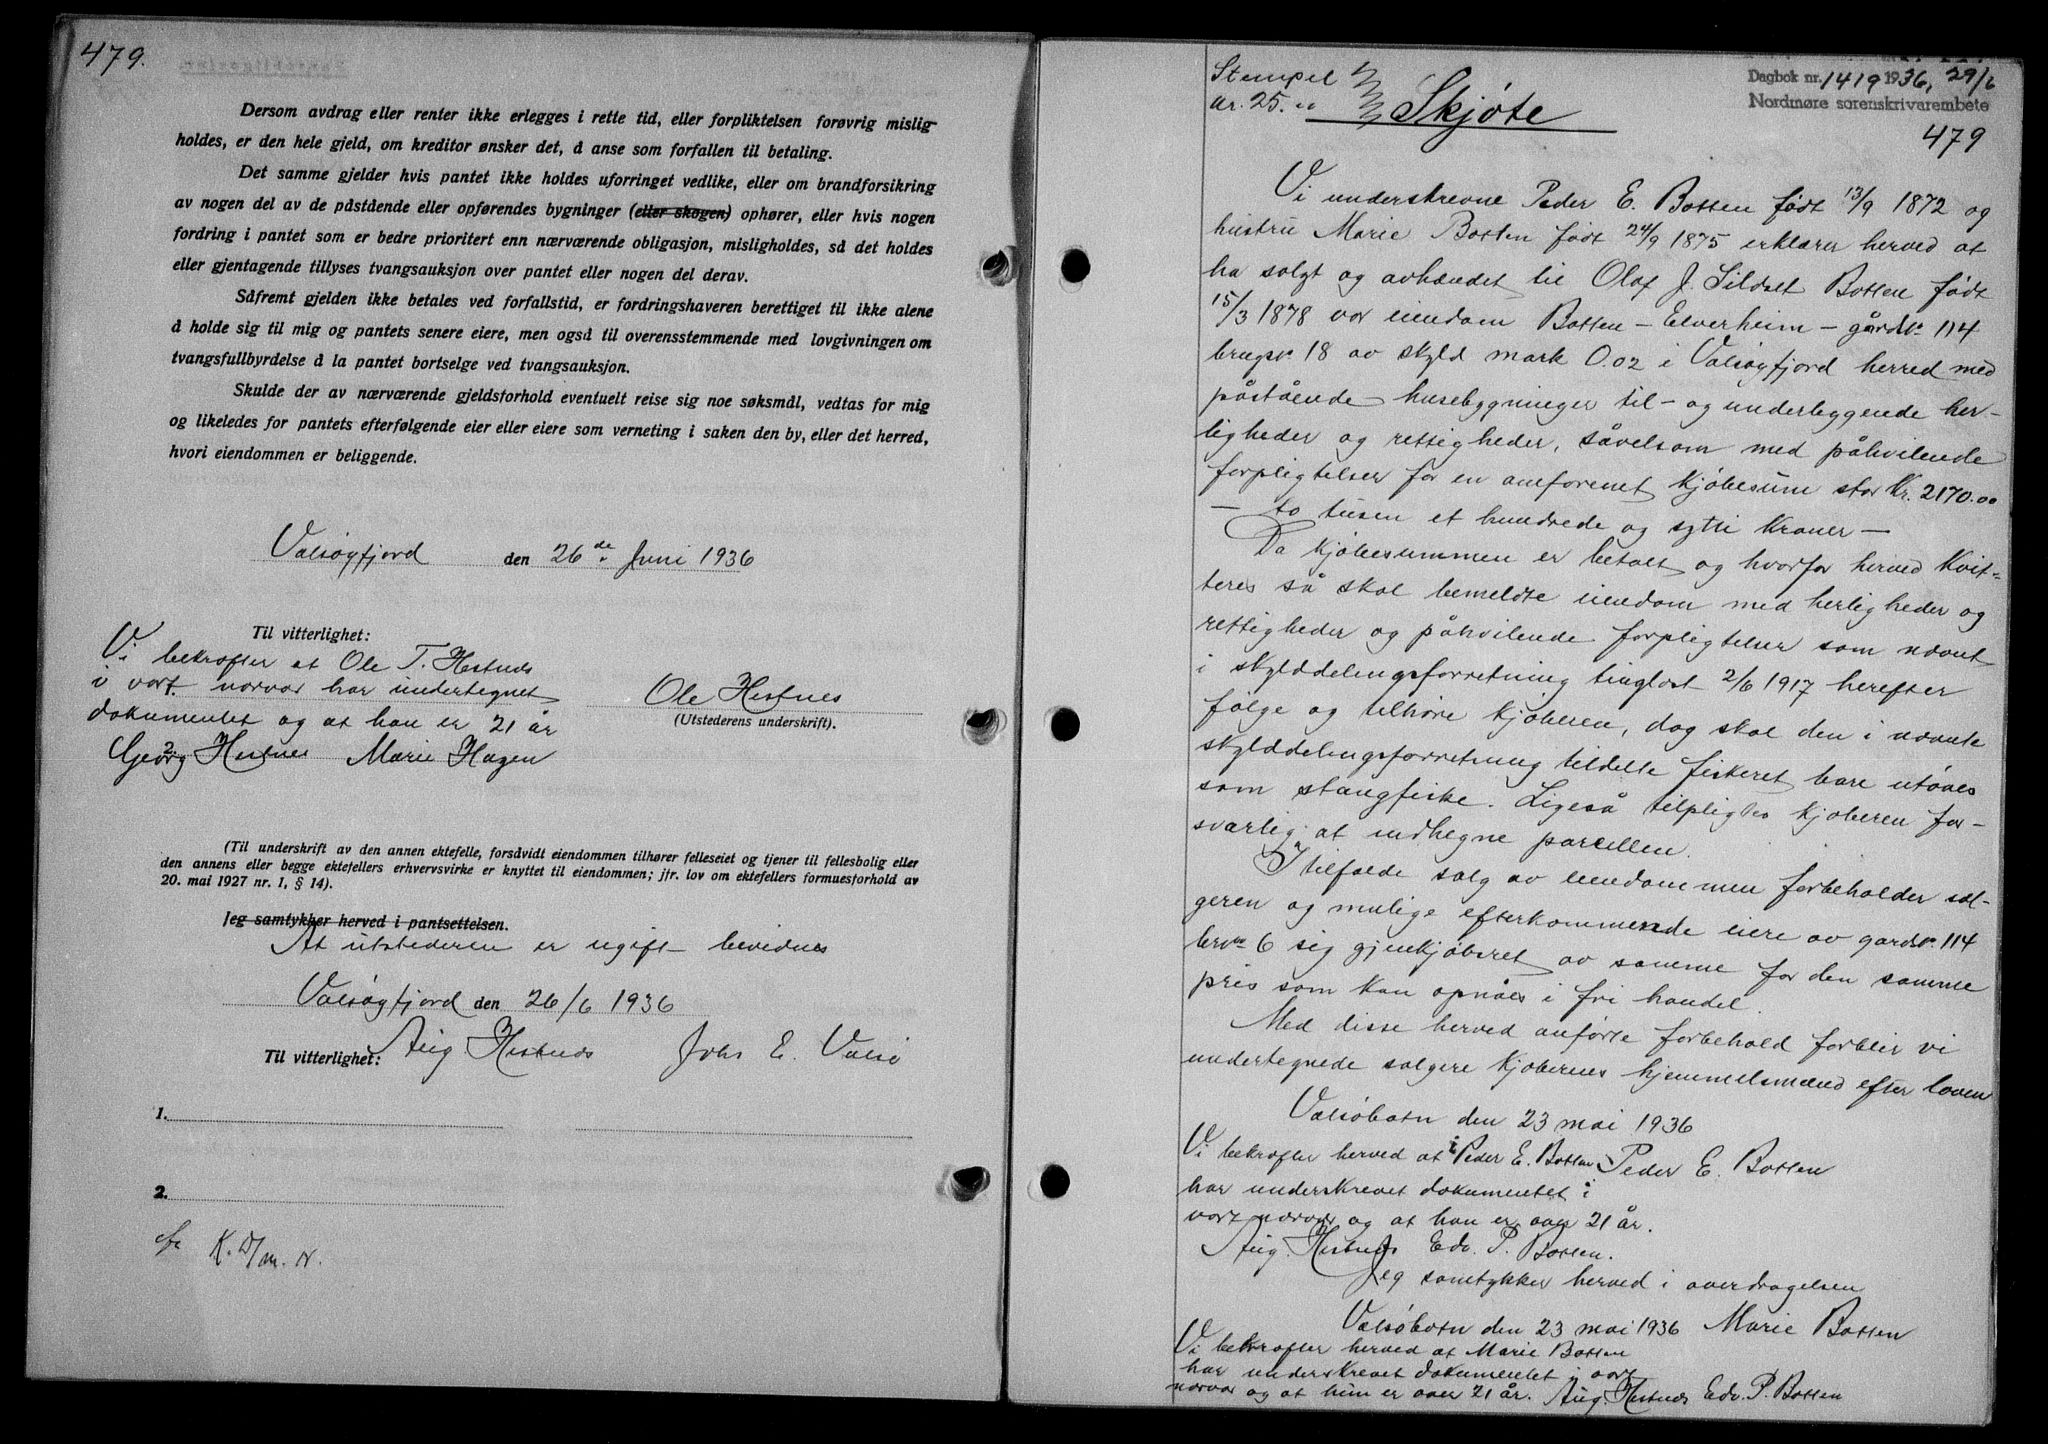 479.
Dersom avdrag eller renter ikke erlegges i rette tid, eller forpliktelsen forøvrig mislig-
holdes, er den hele gjeld, om kreditor ønsker det, å anse som forfallen til betaling.
Det samme gjelder hvis pantet ikke holdes uforringet vedlike, eller om brandforsikring
av nogen del av de påstående eller opførendes bygninger (eller skogen) ophører, eller hvis nogen
fordring i pantet som er bedre prioritert enn nærværende obligasjon, misligholdes, så det holdes
eller gjentagende tillyses tvangsauksjon over pantet eller nogen del derav.
Såfremt gjelden ikke betales ved forfallstid, er fordringshaveren berettiget til ikke alene
å holde sig til mig og pantets senere eiere, men også til overensstemmende med lovgivningen om
tvangsfullbyrdelse å la pantet bortselge ved tvangsauksjon.
Skulde der av nærværende gjeldsforhold eventuelt reise sig noe søksmål, vedtas for mig
og likeledes for pantets efterfølgende eier eller eiere som verneting i saken den by, eller det herred,
hvori eiendommen er beliggende.
Valsøyfjord den 26de Juni 1936
Til vitterlighet:
Vi bekrefter at Ole T. Hestnes
i vort nærvær har undertegnet
dokumentet og at han er 21 år
Georg Hestnes Marie Hagen
2.
Ole Hestnes
(Utstederens underskrift).
(Til underskrift av den annen ektefelle, forsåvidt eiendommen tilhører felleseiet og tjener til fellesbolig eller
den annens eller begge ektefellers erhvervsvirke er knyttet til eiendommen; jfr. lov om ektefellers formuesforhold av
20. mai 1927 nr. 1, § 14).
Jeg samtykker herved i pantsettelsen.
At utstederen er ugift bevidnes
Valsøyfjord den 26/6 1936
Til vitterlighet: Aug Hestnes Johs E. Valsø
1.
2.
Stempel
kr. 25.
Skjøte
Dagbok nr. 1419 1936, 29/6
Nordmøre sorenskrivarembete
479
Vi underskrevne Peder E. Botten født 13/9 1872 og
hustru Marie Botten født 24/9 1875 erklærer herved at
ha solgt og avhændet til Olaf J. Sildset Botten født
15/3 1878 vor eiendom Botten - Elverheim - gårdsnr 114
brugsnr 18 av skyld mark 0.02 i Valsøyfjord herred med
påstående husebygninger til- og underliggende her-
ligheder og rettigheder, såvelsom med påhvilende
forpligtelser for en omforenet kjøbesum stor Kr. 2170.00
- to tusen et hundrede og sytti kroner -
Da kjøbesummen er betalt og hvorfor herved kvit-
teres så skal bemeldte eiendom med herligheder og
rettigheder og påhvilende forpligtelser som nævnt
i skylddelingsforretning tinglæst 2/6 1917 herefter
følge og tilhøre kjøberen, dog skal den i nævnte
skylddelingsforretning tildelte fiskeret bare utøves
som stangfiske. Ligeså tilpligtes kjøberen for-
svarlig at indhegne parcellen.
I tilfælde salg av eiendommen forbeholder sæl-
geren og mulige efterkommende eiere av gårdsnr. 114
brnr 6 sig gjenkjøbsret av samme for den samme
pris som kan opnåes i fri handel.
Med disse herved anførte forbehold forblir vi
undertegnede sælgere kjøbernes hjemmelsmænd efter loven
Valsøbotn den 23 mai 1936
Vi bekrefter herved at Peder E. Botten Peder E. Botten
har underskrevet dokumentet i
vort nærvær og at han er over 21 år.
Aug. Hestnes Edv. P. Botten.
Jeg samtykker herved i overdragelsen
Valsøbotn den 23 mai 1936 Marie Botten
Vi bekrefter herved at Marie Botten
har underskrevet dokumentet i vort
nærvær og at hun er over 21 år. Aug. Hestnes Edv. P. Botten